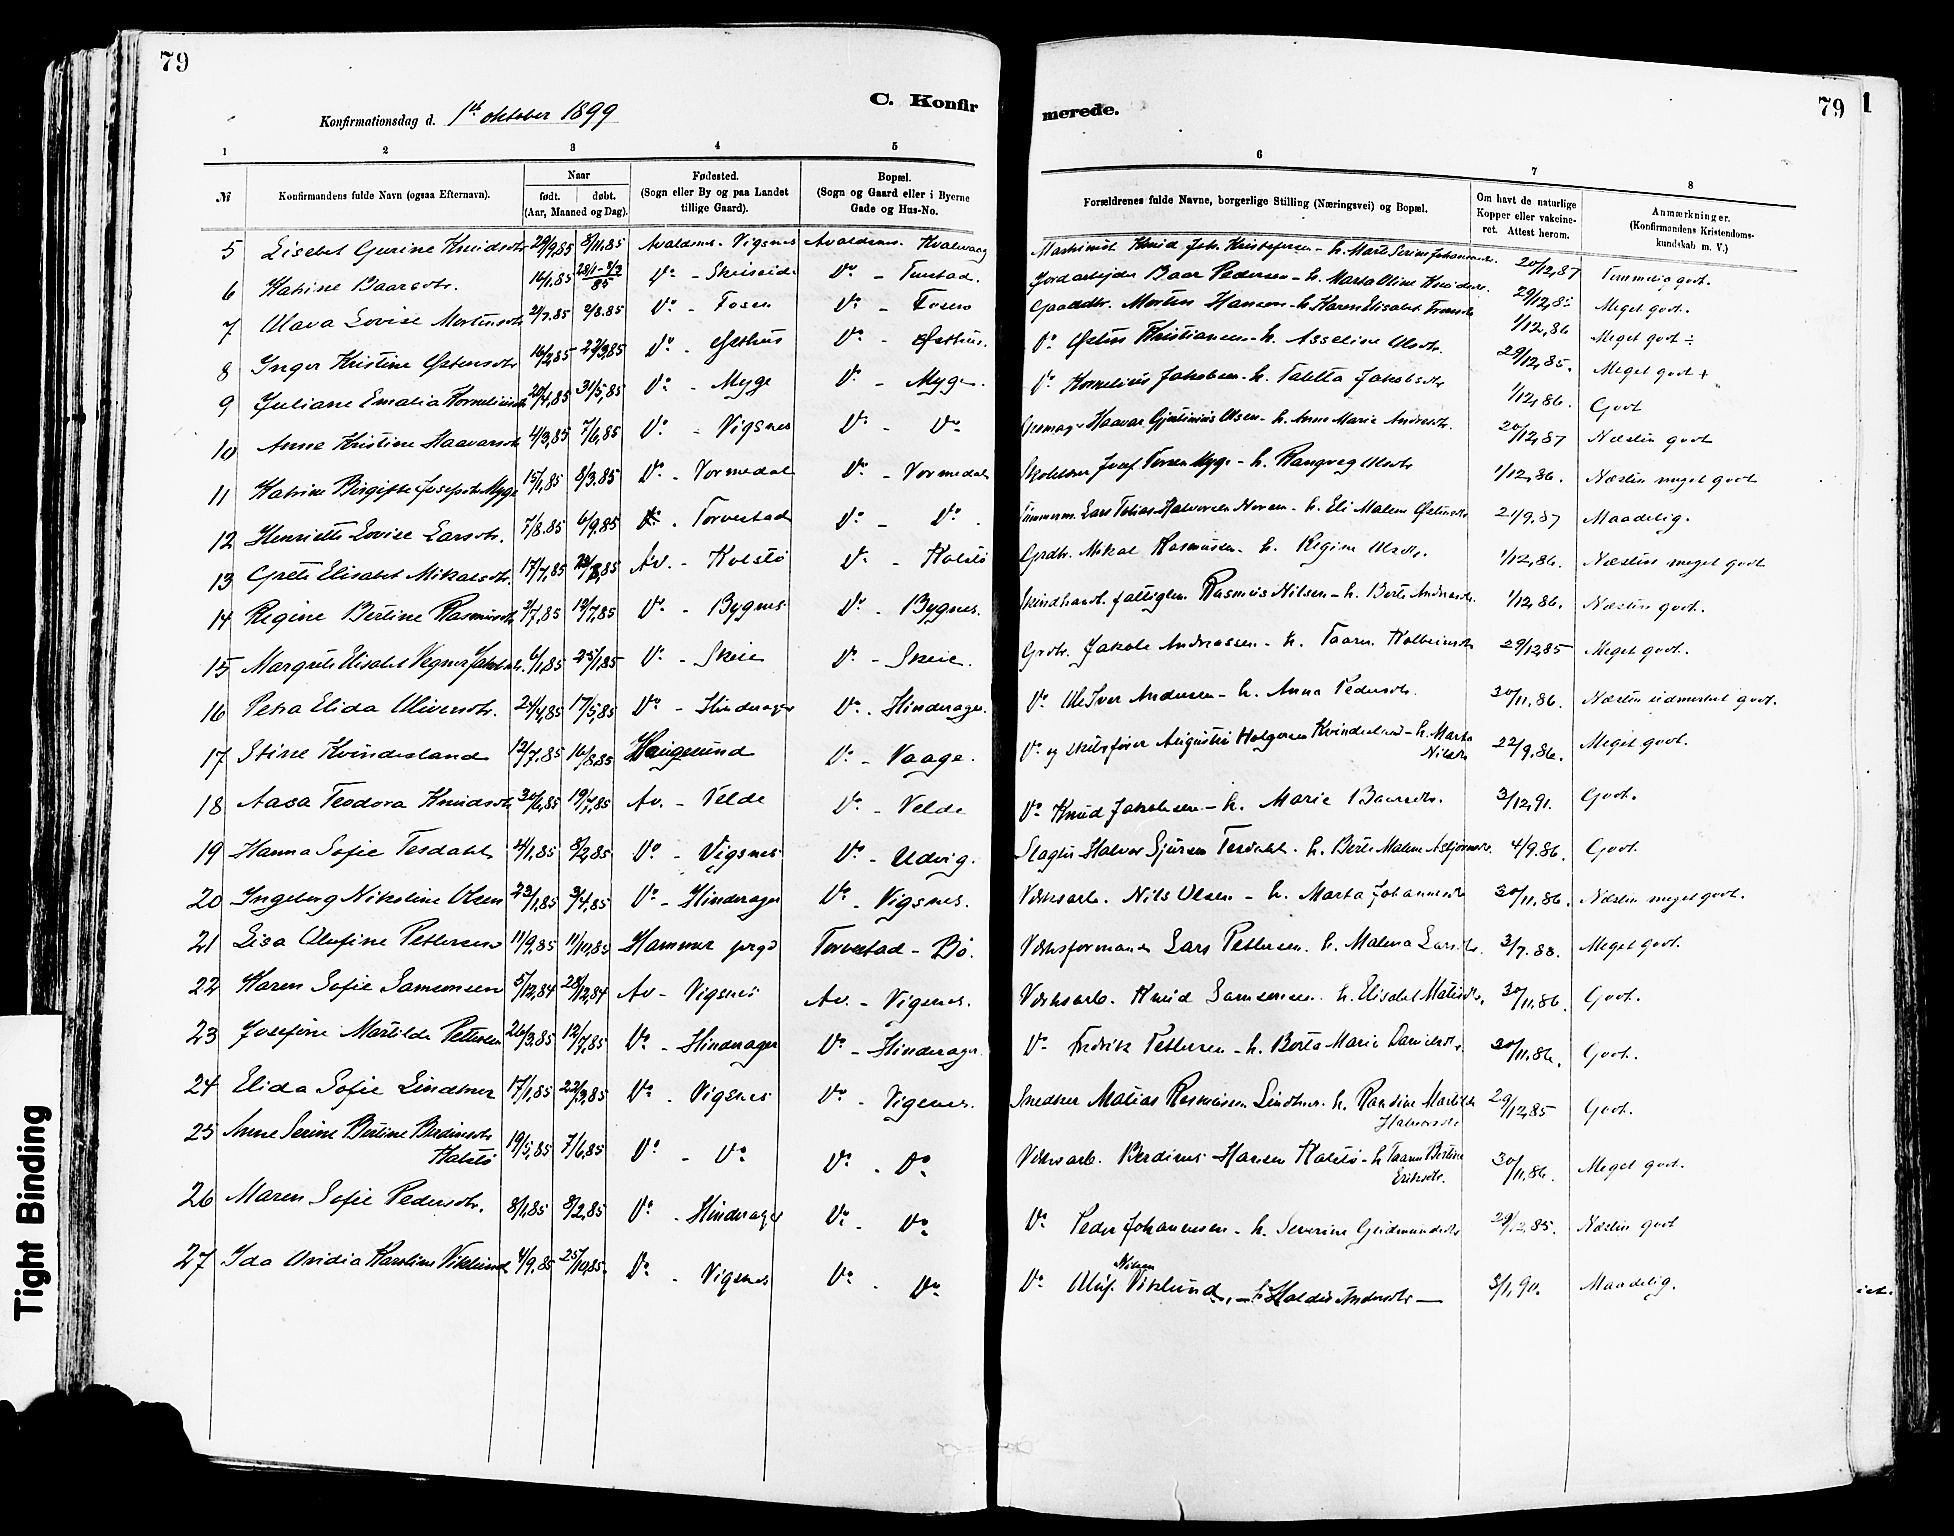 79
C. Konfirmerede.
79
Konfirmationsdag d. 1ste oktober 1899
1 2 3 4 5 6 7 8
№ Konfirmandens fulde Navn (ogsaa Efternavn). Naar født. døbt. (Aar, Maaned og Dag). Fødested. (Sogn eller By og paa Landet tillige Gaard). Bopæl. (Sogn og Gaard eller i Byerne Gade og Hus-No. Forældrenes fulde Navne, borgerlige Stilling (Næringsvei) og Bopæl. Om havt de naturlige Kopper eller vakcineret. Attest herom. Anmærkninger. (Konfirmandens Kristendomskundskab m. V.)
5 Lisebet Gurine Knudsdtr 29/9,85 8/11.85 Avaldsnes - Vigsnes Avaldsnes - Kvalavaag Maskinist Knud Joh. Kristofersen - h. Marte Serine Johannesdtr. 20/12,87 Temmelig godt.
6 Katrine Baarsdtr. 16/1,85 Do - Skeiseid Do - Tuastad Jordarbejder Baar Pedersen - h. Marta Oline Knudsdtr. 29/12,85 Meget godt.
7 Olava Lovise Mortensdtr 2/7.85 2/8.85 Do - Fosen Do - Fosen Gaardbr. Morten Hansen - h. Karen Elisabet 1/12,86 Meget godt ÷
8 Inger Kristine Østensdtr 16/2,85 22/3,85 Do - Østhus Do - Østhus. Do Østen Kristiansen - h. Asseline Olsdtr. 29/12,85. Meget godt +
9 Juliane Emalia Korneliusdtr 20/4,85 31/5,85 Do - Myge Do - Myge. Do Kornelius Jakobsen - h. Taletta Jakobsdtr 1/12,86. Godt
10 Anne Kristine Haavarsdtr 4/3,85 7/6,85 Do - Vigsnes Do - Do Haavar Gjertinius Olsen - h. Anne Marie Andresdtr. 20/12,87 Næsten godt
11 Katrine Birgitte Josefsdtr Myge 15/1,85 8/3.85 Do - Vormedal Do - Vormedal Skoleholder Josef Tersen Myge - h. Rangveg Olsdtr 1/12,86. Næsten meget godt
12 Henriette Lovise Larsdtr. 7/8.85 6/9,85 Do - Torvestad Do - Do. Tømmerm. Lars Tobias Halvorsen - h. Eli Malene Østensdtr 21/9.87 Maadelig.
13 Grete Elisabet Mikalsdtr. 17/7,85 Av. - Kolstø Do - Kolstø Grdbr. Mikal Rasmussen - h. Regine Olsdtr. 1/12,86. Næsten meget godt
14 Regine Bertine Rasmusdtr 2/7,85 12/7,85 Do - Bygnes Do - Bygnes. fattiglem Rasmus Nilsen - h. Berte Andreasdtr. 1/12,86. Næsten godt.
15 Margrete Elisabet Vegner Jakobsdtr. 6/1,85 25/1,85 Do - Skeie Do - Skeie. Grdbr. Jakob Andreassen - h. Taaren Kolbeinsdtr 29/12,85 Meget godt.
16 Petra Elida Oliversdtr. 24/4,85 17/5,85 Do - Hinderager Do - Hinderager. Do Ole Iver Andersen - h. Anna Pedersdtr. 30/11,86. Næsten udmerket godt.
17 Stine Kvindesland 12/7,85 16/8,85 Haugesund Do - Vaage. Do og skibsfører Augustus Holgersen Kvindesland - h. Marta
Nilsdtr 22/9.86. Meget godt.
18 Aasa Teodora Knudsdtr 30/6,85 19/7,85 Av. - Velde Do - Velde Do Knud Jakobsen - h. Marie Baarsdtr. 3/12,91. Godt.
19 Hanna Sofie Tesdahl 4/1,85 8/2,85 Do - Vigsnes Do - Udvig. Slagter Halvor Sjursen Tesdahl - h. Berte Malene Asbjørnsdtr. 4/9.86. Godt.
20 Ingeborg Nikoline Olsen 23/1,85 3/4,85 Do - Hinderager Do - Vigsnes. Verksarb. Nils Olsen - h. Marta Johannesdtr 30/11,86. Næsten meget godt.
21 Lisa Olufine Pettersen 11/9,85 11/10,85 Hammer prgd Torvestad - Bø. Verksformand Lars Pettersen - h. Malena Larsdtr. 3/7.88. Meget godt.
22 Karen Sofie Samsonsen 5/12,84 28/12,84 Av - Vigsnes Av. - Vigsnes. Verksarb. Knud Samsonsen - h. Elisabet Matisdtr. 30/11,86. Godt.
23 Josefine Matilde Pettersen 26/3,85 12/7,85 Do - Hinderager Do - Hinderager. Do Fredrik Pettersen - h. Berta Marie Danielsdtr. 30/11,86. Godt.
24 Elida Sofie Lindtner 17/1,85 22/3,85 Do - Vigsnes Do - Vigsnes. Snedker Matias Rasmussen Lindtner - h. Randine Matilde
Halvorsdtr 29/12,85 Godt.
25 Anne Serine Bertine Berdinesdtr
Kolstø 19/5,85 7/6,85 Do - Do Do - Do Verksarb. Berdines Hansen Kolstø - h Taaren Bertine
Eriksdtr. 30/11,86. Meget godt.
26 Maren Sofie Pedersdtr. 8/1,85 8/2,85 Do - Hinderager Do - Do Do Peder Johannesen - h. Severine Gudmundsdtr 29/12,85. Næsten godt
27 Ida Ovidia Karoline Viklund 4/9.85 25/10,85. Do - Vigsnes Do - Do Do Oluf Nilsen Viklund, - h. Haldis Andersdtr - 3/1,90. Maadelig.
Tight Binding